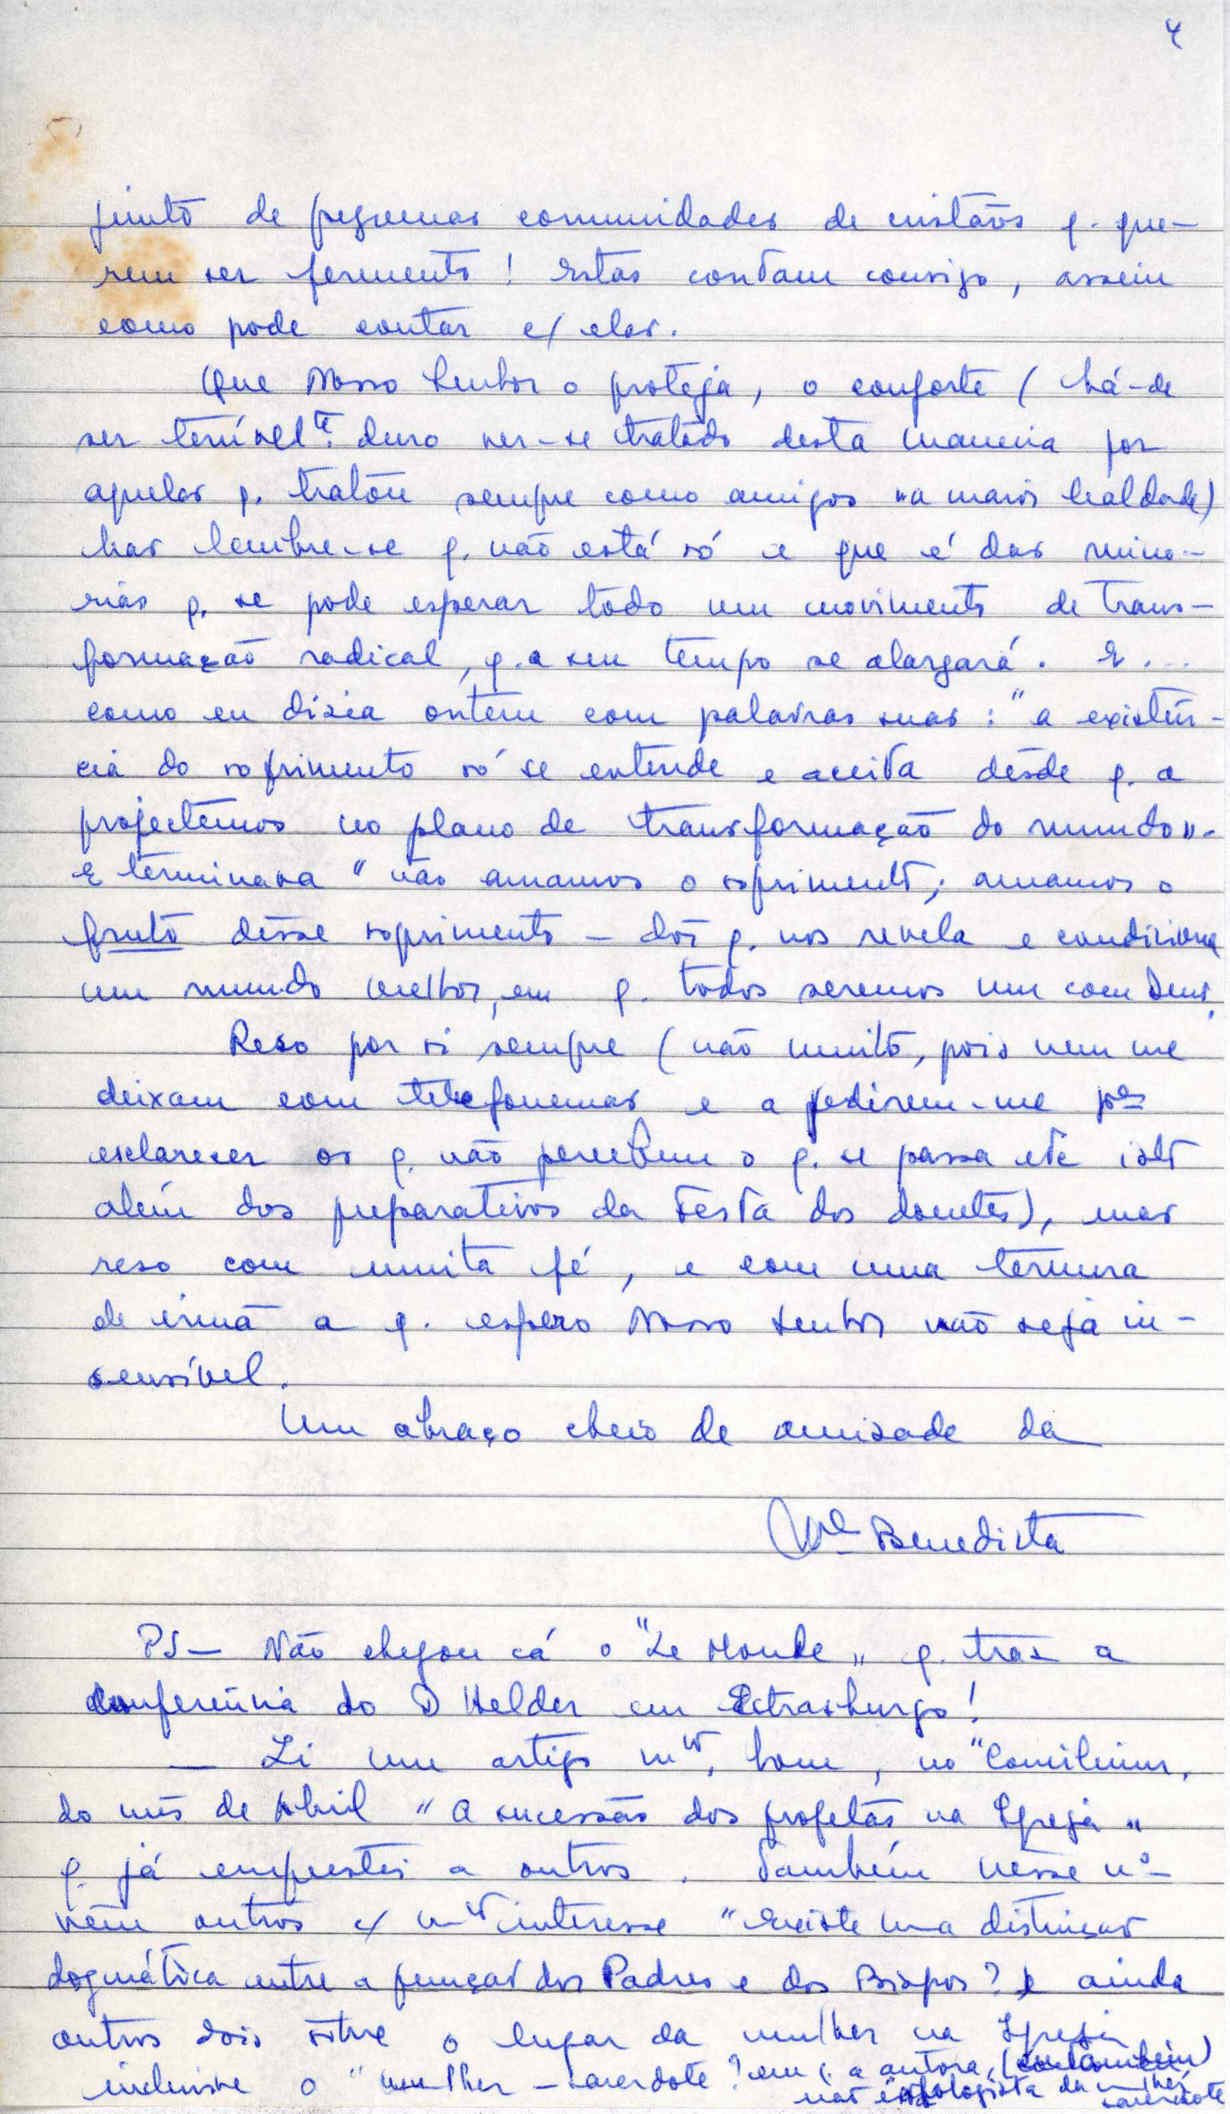 4
junto de pequenas comunidades de cristãos q. que-
rem ser fermento! Estas contam consigo, assim
como pode contar c/ elas.
Que Nosso Senhor o proteja, o conforte (há-de
ser terrívelte. duro ver-se tratado desta maneira por
aqueles q. tratou sempre como amigos na maior lealdade)
Mas lembre-se q. não está só e que é das mino-
rias q. se pode esperar todo um movimento de trans-
formação radical, q. a seu tempo se alargará. E...
como eu dizia ontem com palavras suas: "a existên-
cia do sofrimento só se entende e aceita desde q. a
projectemos no plano de transformação do mundo".
E terminava "não amamos o sofrimento; amamos o
fruto dêsse sofrimento – dor q. nos revela e condiciona
um mundo melhor, em q. todos seremos um com Deus.
Reso por si sempre (não muito, pois nem me
deixam com telefonemas e a pedirem-me pª
esclarecer os q. não percebem o q. se passa etc isto
além dos preparativos da Festa dos doentes), mas
reso com muita fé, e com uma ternura
de irmã a q. espero Nosso Senhor não seja in-
sensível.
Um abraço cheio de amizade da
Mª Benedicta
PS – Não chegou cá o "Le Monde" q. traz a
conferência do D Helder em Estrasburgo!
– Li um artigo mto. bom, no "Concilium"
do mês de Abril "A sucessão dos profetas na Igreja"
q. já emprestei a outros. Também nesse nº
vêm outros c/ mto interesse "Existe uma distinção
dogmática entre a função dos Padres e dos Bispos? E ainda
outros dois sôbre o lugar da mulher na Igreja
inclusive o "mulher – sacerdote? em q. a autora, (eu também)
não é apologista da mulher
sacerdote